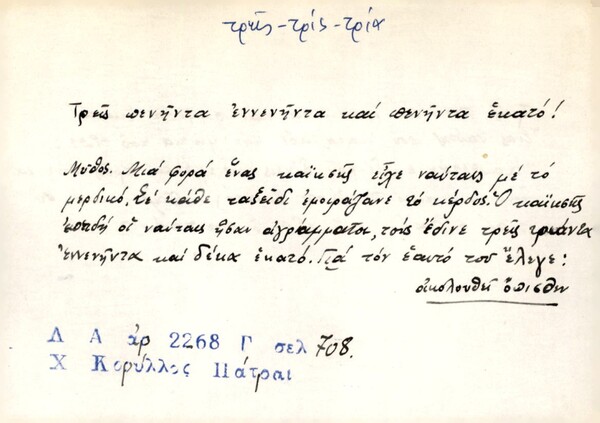 τρεῖς - τρίς - τρία
Τρεῖς πενῆντα ἐννενῆντα καί πενῆντα ἑκατό!
Μῦθος. Μιά φορά ἕνας καϊκσῆς εἶχε ναύταις μέ τό
μερδικό, Σέ κάθε ταξεῖδι ἐμοιράζανε τό κέρδος. Ὁ καϊκσῆς
ἐπειδή οἱ ναύταις ἦσαν ἀγράμματοι, τούς ἔδινε τρεῖς τριάντα
ἐννενῆντα καί δέκα ἑκατό. Γιά τόν ἑαυτό του ἔλεγε:
ἀκολουθεῖ ὄπισθεν
Λ Α ἀρ 2268 Γ σελ 708.
Χ Κορύλλος Πάτραι